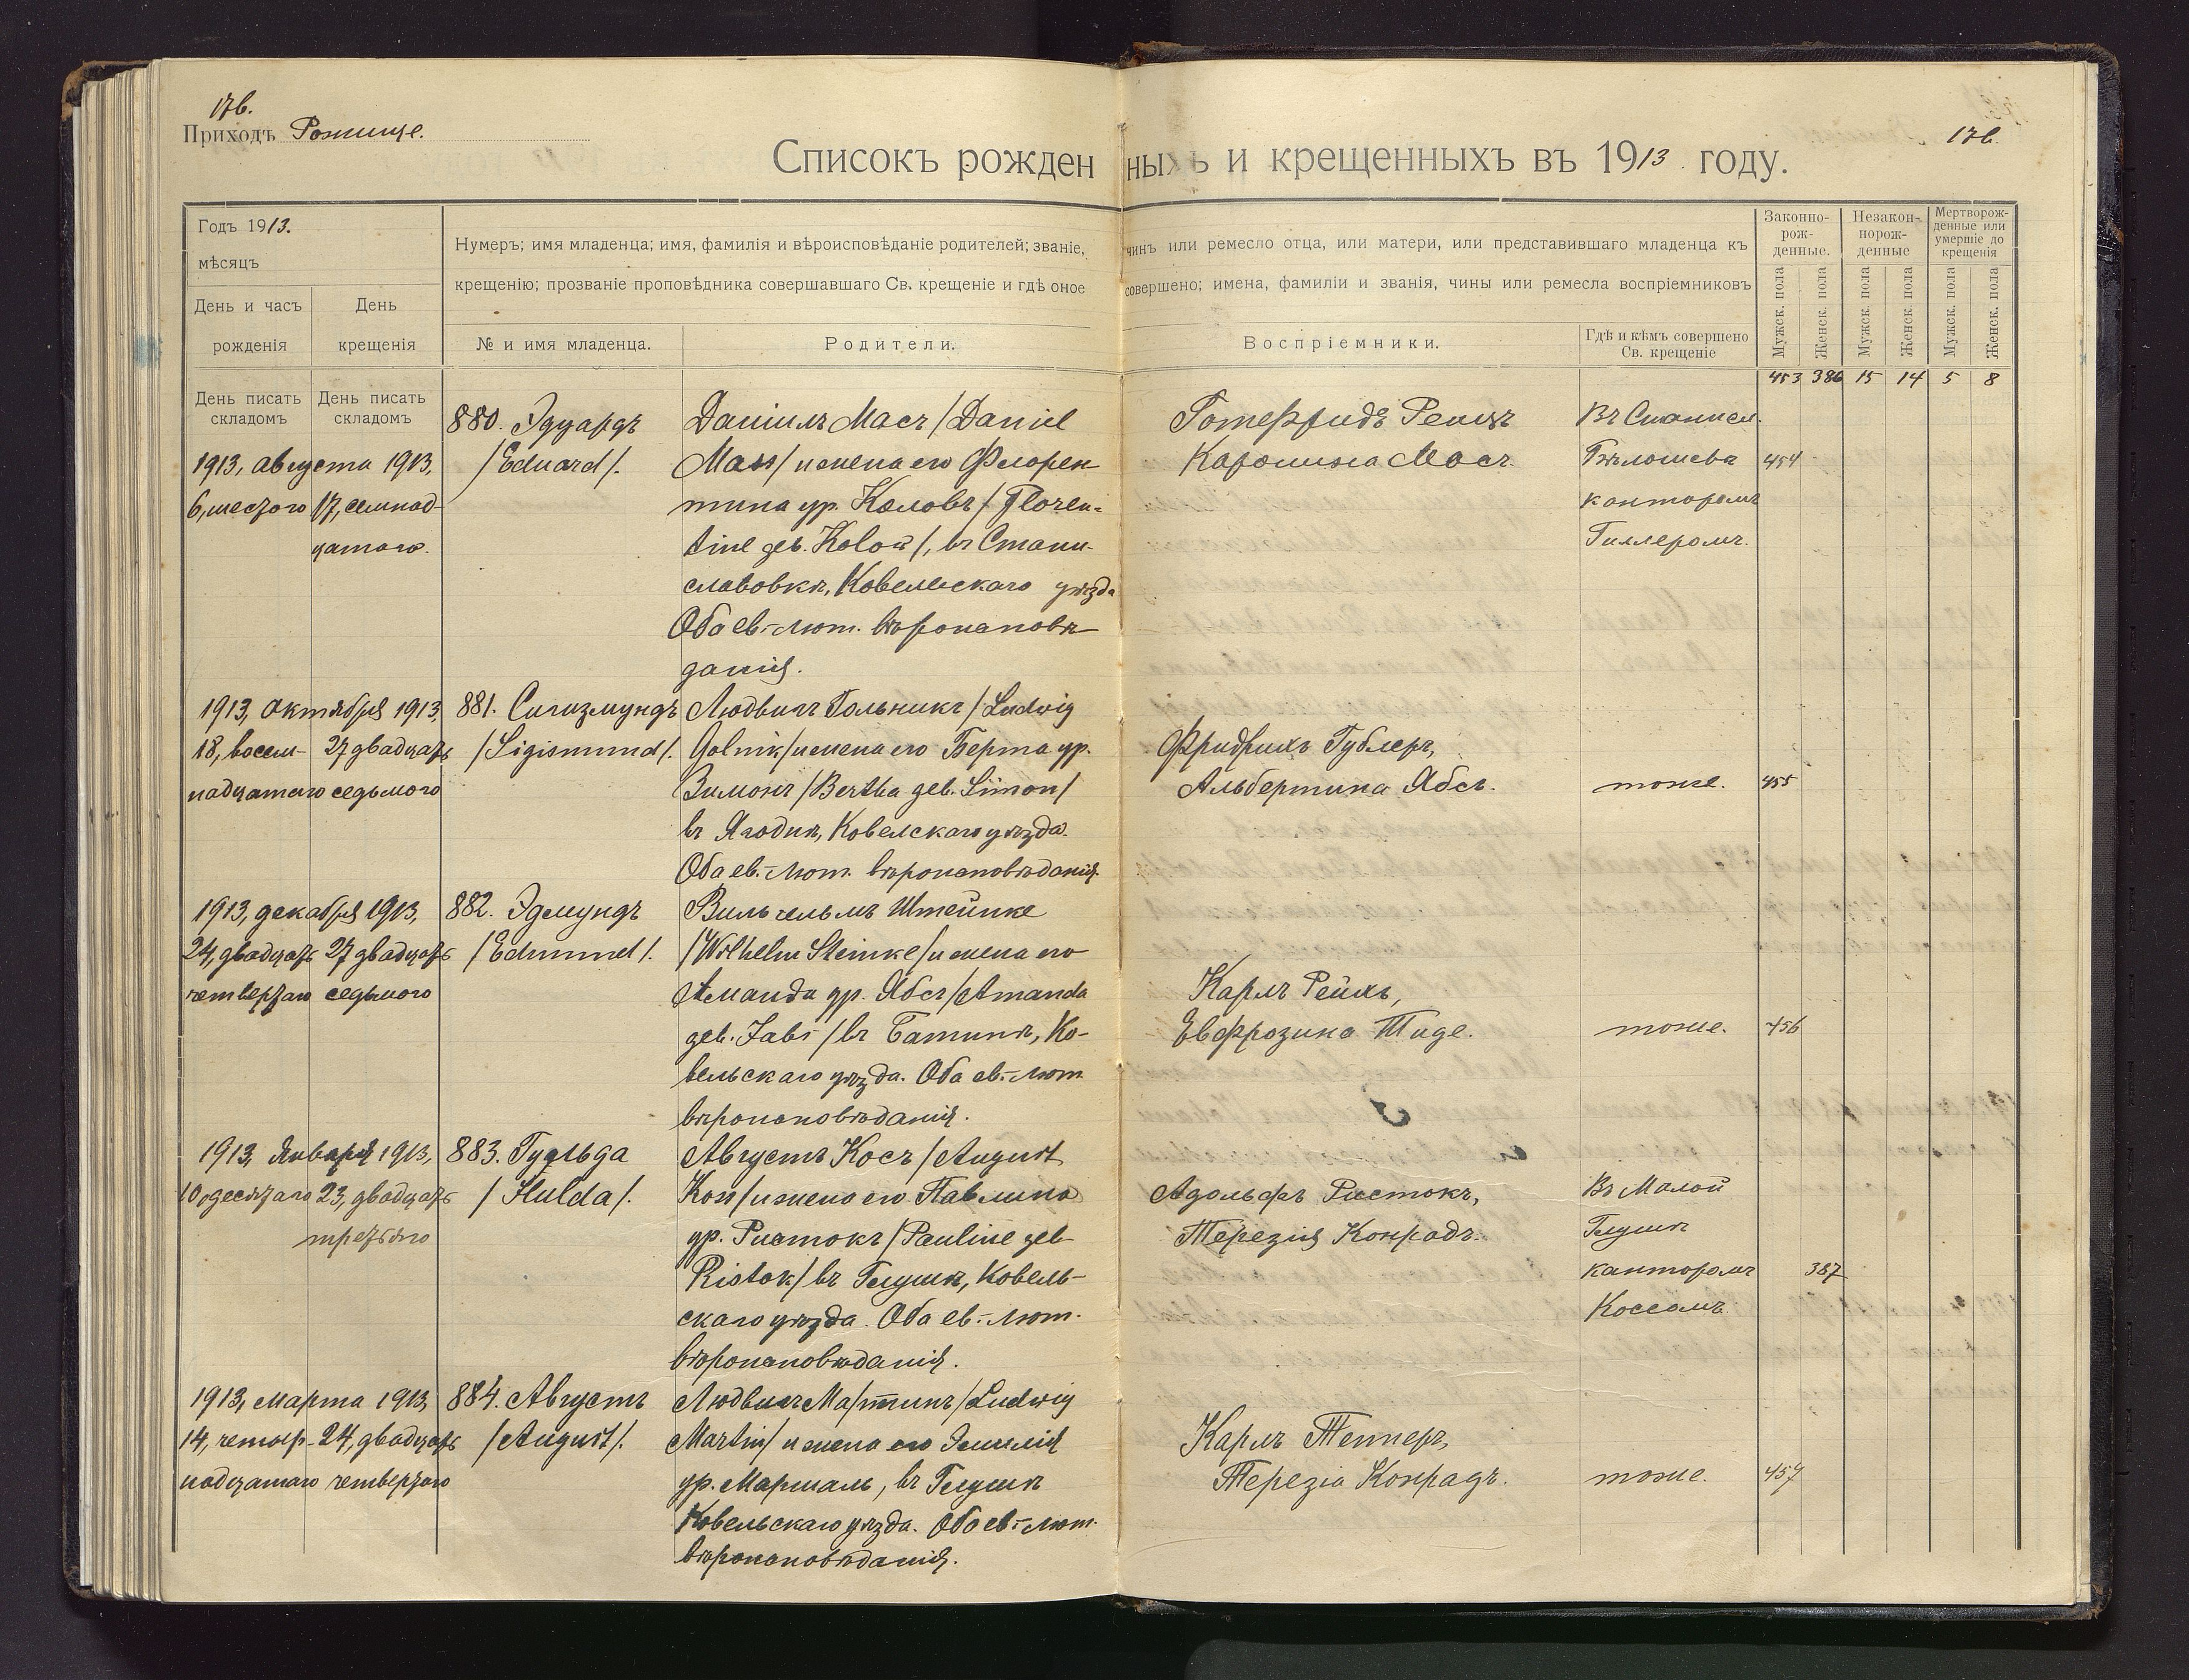 176.
Приходъ Рожище.
176.
Списокъ рожденныхъ и крещенныхъ въ 1913 году.
Годъ 1913.
мѣсяцъ
День и часъ рожденія
День крещенія
Нумеръ; имя младенца; имя, фамилія и вѣроисповѣданіе родителей; званіе, чинъ или ремесло отца, или матери, или представившаго младенца къ
крещенію; прозваніе проповѣдника совершавшаго Св. крещеніе и гдѣ оное совершено; имена, фамиліи и званія, чины или ремесла воспріемниковъ
№ и имя младенца.
Родители.
Воспріемники.
Гдѣ и кѣмъ совершено
Св. крещеніе
Законно-
рож-
денные.
Незакон-
норож-
денные
Мертворож-
денные или
умершіе до
крещенія
Мужск. пола
Женск. пола
Мужск. пола
Женск. пола
Мужск. пола
Женск. пола
453 386 15 14 5 8
День писать
складомъ
День писать
складомъ
1913, августа 1913,
6, шестого 17, семнад-
цатого.
880. Эдуардъ
/Eduard/.
Даніилъ Масъ /Daniel
Mass/ и жена его Флорен-
тина ур. Коловъ / Floren-
tine геб. Kolow/, въ Стани-
славовкѣ, Ковельскаго уѣзда
Оба ев.-лют. вѣроисповѣ-
данія.
Готфридъ Ренцъ
Каролина Масъ.
Въ Станисл.
канторомъ
Гиллеромъ.
454
1913, октября 1913,
18, восем- 27 двадцать
надцатаго седьмого
881. Сигизмундъ
/Sigismund/.
Людвигъ Гольникъ /Ludwig
Golnik/ и жена его Берта ур.
Зимонъ /Bertha геб. Simon/
въ Ягодинѣ, Ковелскаго уѣзда.
Оба ев.-лют. вѣроисповѣданія.
Фридрихъ Гублеръ,
Альбертина Ябсъ.
тоже.
455
1913, декабря 1913,
24, двадцать 27 двадцать
четвертаго седьмого
882. Эдмундъ
/Edmund/.
Вильгельмъ Штейнке
/Wilhelm Steinke/ и жена его
Аманда ур. Ябсъ /Amanda
геб. Jabs / въ Ко-
вельскаго уѣзда. Оба ев.-лют.
вѣроисповѣданія.
Карлъ Рейхъ,
Евфрозина Тиде.
тоже.
456
1913, Января 1913,
10, десятаго 23, двадцать
третьяго
883. Гульда
/ Hulda/.
Августъ Косъ /August
Koss/ и жена его Павлина
ур. Ристокъ /Pauline геб
Ristok/ въ Глушѣ, Ковель-
скаго уѣзда. Оба ев.-лют.
вѣроисповѣданія.
Адольфъ Ристокъ,
Терезія Конрадъ.
Въ Малой
Глушѣ
канторомъ
Коссомъ.
387
1913, марта 1913,
14, четыр- 24, двадцать
надцатаго четвертаго
884. Августъ
/August/.
Людвигъ Мартинъ /Ludwig
Martin/ и жена его Эмилія
ур. Маршаль, въ Глушѣ
Ковельскаго уѣзда. Оба ев.-лют.
вѣроисповѣданія.
Карлъ Теппер,
Терезіа Конрадъ.
тоже.
457